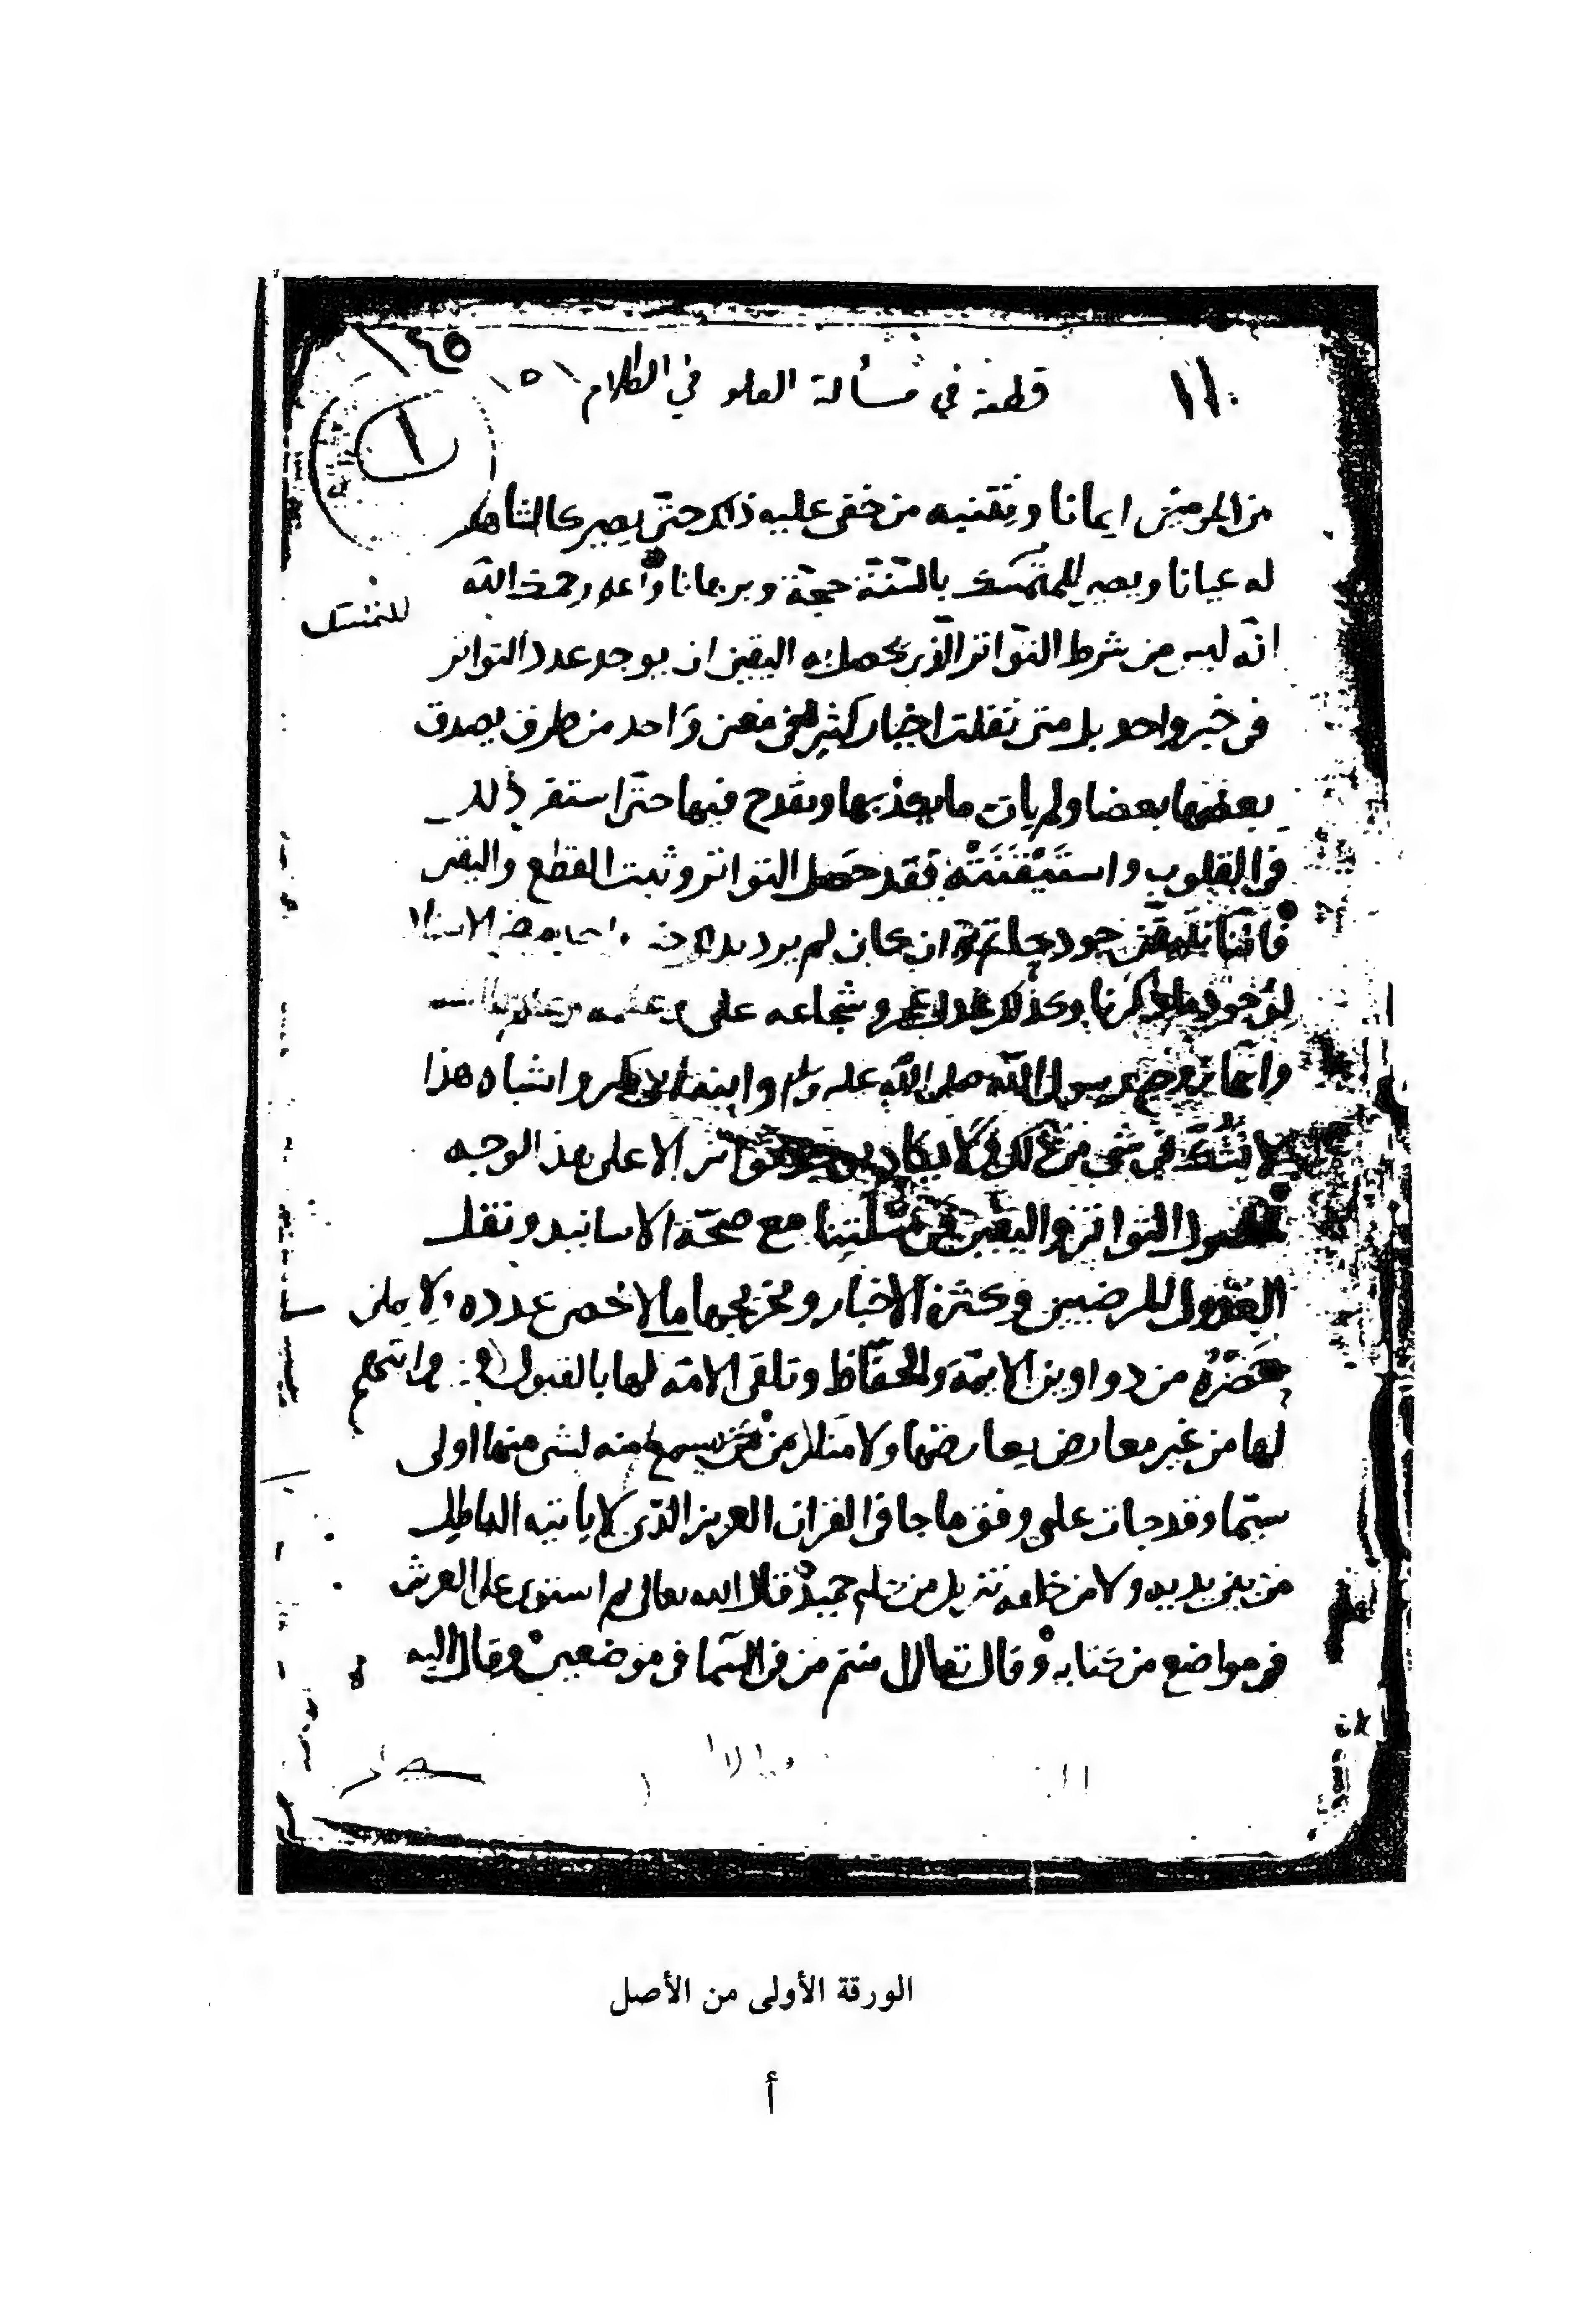 ١١٠ قطعة في مسألة العلو في الكلام ١٥١
١٤٥
١
من المؤمنين ايمانا وتقنيه من خفى عليه ذلك حتى يصير كالشاهد
له عيانا ويصير للمتمسك بالسنة حجة وبرهانا واعلم رحمك الله
للمتمسك
انه ليس من شرط التواتر الذى يحصل به اليقين ان يوجد عدد التواتر
فى خبر واحد بل متى نقلت اخبار كثيرة فى معنى واحد من طرق يصدق
بعضها بعضا ولم يات ما يكذبها ويقدح فيها حتى استقر ذلك
فى القلوب واستيقنته فقد حصل التواتر وثبت القطع واليقين
فاننا نتيقن جود حاتم وان كان لم يرد بذلك خبر واحد
لوجود ما ذكرنا وكذلك عدل عمر وشجاعة على وعلمه
رسول الله صلى الله عليه وسلم وابنة ابى بكر واشباه هذا
لا يشك فى شى من ذلك ولا يكاد يوجد تواتر الا على هذا الوجه
فحصول التواتر واليقين فى مسئلتنا مع صحة الاسانيد ونقل
العدول المرضيين وكثرة الاخبار وتخريجها ما لا يحصى عدده ولا يمكن
حصره من دواوين الايمة والحفاظ وتلقى الامة لها بالقبول وروايتهم
لها من غير معارض يعارضها ولا منكر من يسمع منه لشى منها اولى
سيما وقد جات على وفق ما جا فى القران العزيز الذى لا ياتيه الباطل
من بين يديه ولا من خلفه تنزيل من حكيم حميد قال الله تعالى ثم استوى على العرش
فى مواضع من كتابه وقال تعالى امنتم من فى السما فى موضعين وقال اليه
الورقة الأولى من الأصل
أ